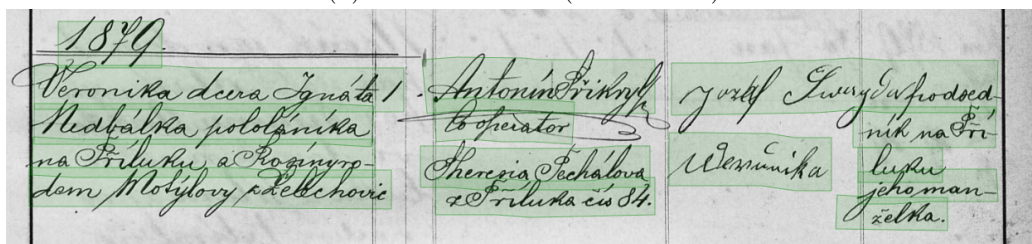 1879.
Veronika dcera Ignáta 1.
Nedbálka pololáníka
na Příluku a Roziny ro-
dem Motýlovy z Želechovic
Antonín Přikryl
Cooperator
Theresia Čechálova
z Příluka čís 84.
Jozef podsed-
ník na Pří-
luku
Werunika jeho man-
želka.